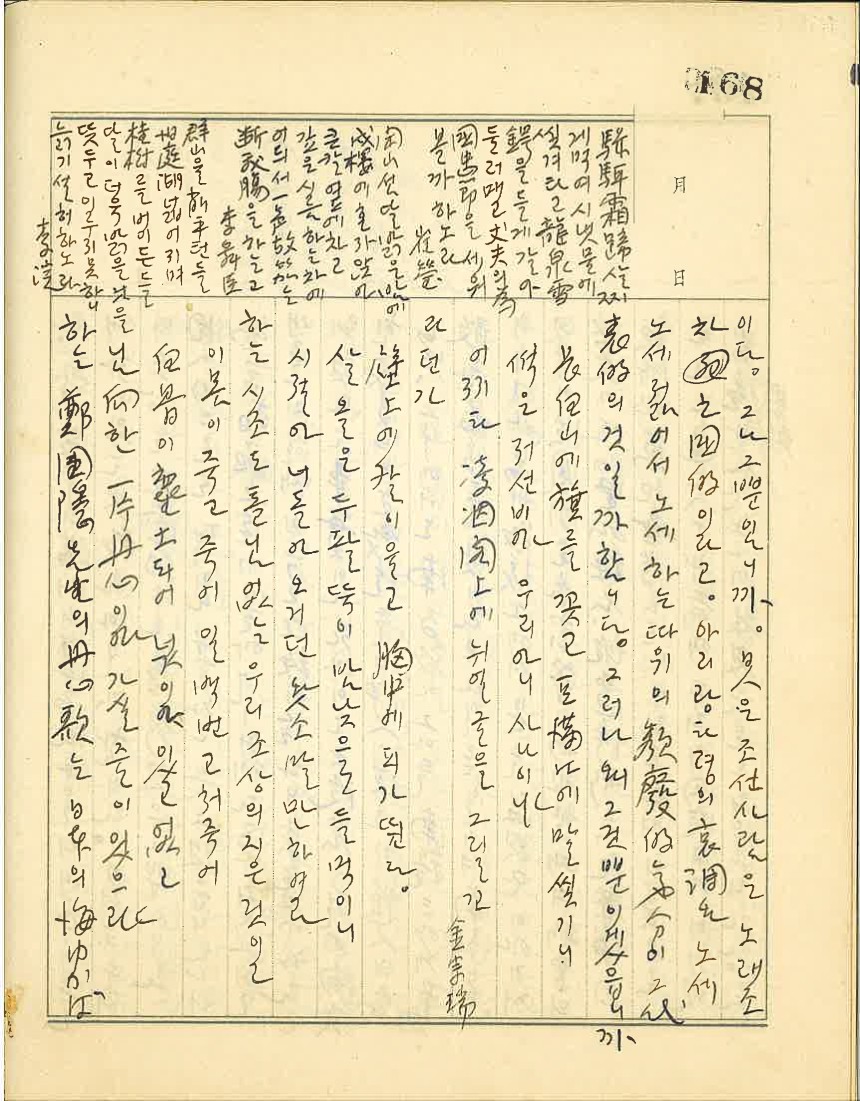 168
月 日
騄駬霜蹄 살찌
게먹여 시냇물에
씻겨타고 龍泉雪
鍔을 들게 갈아
둘러메고 丈夫의 爲
國忠節을 세워
볼까 하노라
崔瑩
閑山섬 달밝은밤에
戍樓에 혼자앉아
큰칼 옆에차고
깊은 시름하는차에
어듸서 一聲胡笳는
斷我腸을 하는고
李舜臣
群山을 削平턴들
洞庭湖 넓어지며
桂樹를 버히든들
달이 더욱 밝을것을
뜻두고 이루지못하니
늙기설허하노라
李浣
이다. 그나 그뿐입니까. 보시오 조선사람은 노래조
차 亡國的이라고. 아리랑타령의 哀調와 노세
노세 젊어서 노세하는 따위의 頹廢的氣分이 그
哀的의 것일까 합니다. 그러나 왜 그것뿐이겠습니까
長白山에 旗를 꽂고 豆滿江에 말 씻기니
썩은 저 선비야 우리 아니 사나이냐
어찌타 凌烟閣上에 뉘 얼굴을 그리고
金宗瑞
라던가
壁上에 칼이 울고 胸中에 피가 뛴다
살 오른 두 팔뚝이 밤낮으로 들먹이니
시절아 너 돌아오거던 왓소 말만 하여라
하는 시조도 틀님없는 우리 조상의 지은 것이오
이몸이 죽고 죽어 일백번 고처죽어
白骨이 塵土되어 넋이야 있고 없고
님 向한 一片丹心이야 가실 줄이 있으랴
하는 鄭圃隱先生의 丹心歌는 日本의 海ゆかば